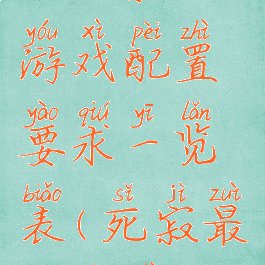 yóu xì pèi zhì
游戏配置
yào qiú yī lǎn
要求一览
biǎo sǐ jì zuì
表(死寂最